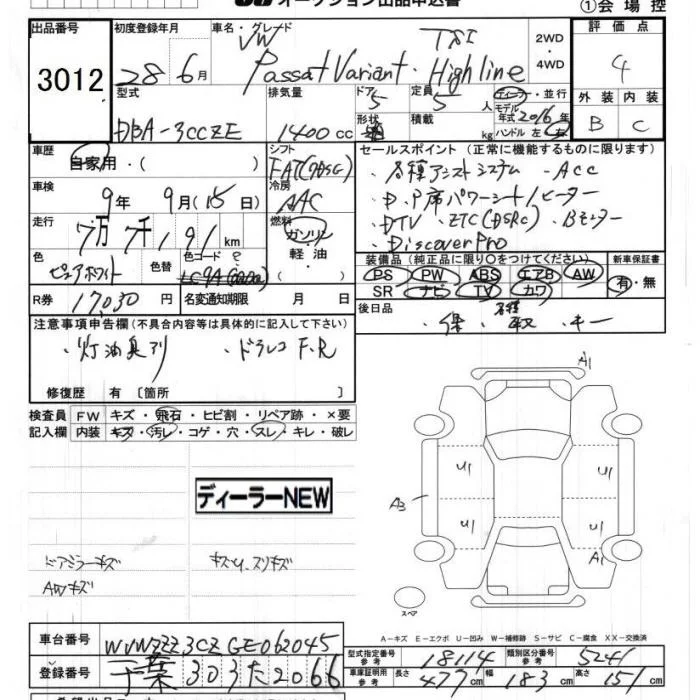 オークション出品申込書
①会場控
出品番号 初度登録年月 車名・グレード 評価点
3012 28年6月 VW TSI 2WD・4WD 4
Passat Variant・Highline
型式 排気量 ドア 定員 ディーラー・並行 外装 内装
DBA-3CCZE 1400cc 5 5人 モデル年式2016年 B C
形状 積載 kg ハンドル 左 右
車歴 シフト セールスポイント (正常に機能するものに限ります)
自家用・( ) FAT(7DSG) ・各種アシストシステム ・ACC
車検 冷房
9年 9月(15日) AAC ・D.P席パワーシート/ヒーター
走行 燃料 ・DTV ・ETC(DSRC) ・Bモニター
7万7千191km ガソリン ・Discover Pro
軽油
・( ) 装備品 (純正品に限り○をつけてください) 新車保証書
色 色替 色コード PS PW ABS エアB AW 有・無
ピュアホワイト LC9A(0Q0Q) SR ナビ TV カワ
R券 17,030円 名変通知期限 月 日 後日品
・保 ・各種取 ・キー
注意事項申告欄(不具合内容等は具体的に記入して下さい)
・灯油臭アリ ・ドラレコF.R
修復歴 有 [箇所 ]
検査員 FW キズ・飛石・ヒビ割・リペア跡・×要
記入欄 内装 キズ・汚レ・コゲ・穴・スレ・キレ・破レ
A1
U1 U1
A3
U1 U1
A1
ディーラーNEW
ドアミラーキズ キズU.スリキズ
AWキズ
スペア
A-キズ E-エクボ U-凹み W-補修跡 S-サビ C-腐食 XX-交換済
車台番号 WVWZZZ3CZGE062045
型式指定番号参考 18114 類別区分番号参考 5241
登録番号 千葉303た2066
車庫証明用参考 長さ 477cm 幅 183cm 高さ 151cm